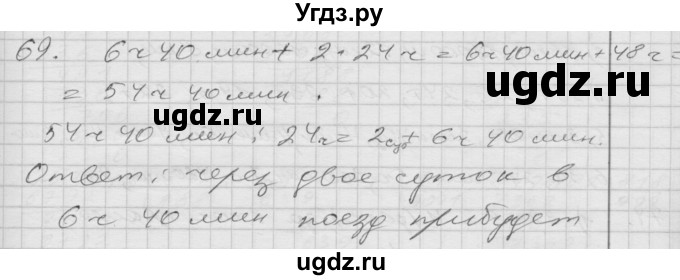 Угдз.ру
69. 6ч 40 мин + 2 · 24 ч = 6ч 40 мин + 48 ч =
ugdz.ru
= 54 ч 40 мин.
ugdz.ru
54 ч 40 мин : 24ч = 2сут + 6ч 40 мин.
Ответ: через двое суток в
6 ч 40 мин поезд прибудет
ugdz.ru
ugdz.ru